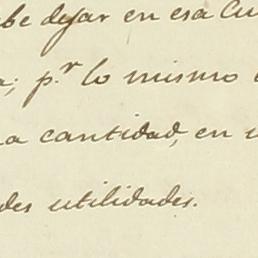 be dejar en esa Cu
a; p.r lo mismo
a cantidad, en
des utilidades.